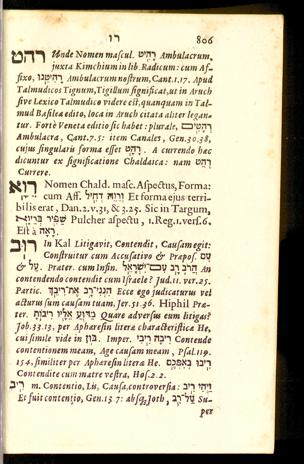 רו 806
רהט Unde Nomen mascul. רָהִיט Ambulacrum,
juxta Kimchium in lib. Radicum: cum Af-
fixo, רָהִיטֵנוּ Ambulacrum nostrum, Cant. 1. 17. Apud
Talmudicos Tignum, Tigillum significat, ut in Aruch
sive Lexico Talmudico videre est, quanquam in Tal-
mud Basileæ edito, loca in Aruch citata aliter legan-
tur. Fortè Veneta editio sic habet: plurale, רְהָטִים
Ambulacra, Cant. 7. 5: item Canales, Gen. 30. 38,
cujus singularis forma esset רַהַט. A currendo hæc
dicuntur ex significatione Chaldaica: nam רְהַט
Currere.
רוא Nomen Chald. masc. Aspectus, Forma:
cum Aff. רֵוֵהּ דְּחִיל Et forma ejus terri-
bilis erat, Dan. 2. v. 31, & 3. 25. Sic in Targum,
שַׁפִּיר בְּרֵיוָא Pulcher aspectu, 1. Reg. 1. vers. 6.
Est à רָאָה.
רוב In Kal Litigavit, Contendit, Causam egit:
Construitur cum Accusativo & Præpos. עִם
& עַל. Præter. cum Infin. הֲרֹב רָב עִם־יִשְׂרָאֵל An
contendendo contendit cum Israele? Jud. 11. ver. 25.
Partic. הִנְנִי־רָב אֶת־רִיבֵךְ Ecce ego judicaturus vel
acturus sum causam tuam, Jer. 51. 36. Hiphil Præ-
ter. מַדּוּעַ אֵלָיו רִיבוֹתָ Quare adversus eum litigas?
Job. 33. 13, per Aphæresin literæ characteristicæ He,
cui simile vide in בּוּן. Imper. רִיבָה רִיבִי Contende
contentionem meam, Age causam meam, Psal. 119.
154, similiter per Aphæresin literæ He. רִיבוּ בְאִמְּכֶם
Contendite cum matre vestra, Hos. 2. 2.
רִיב m. Contentio, Lis, Causa, controversia: וַיְהִי רִיב
Et fuit contentio, Gen. 13. 7: absq; Joth, עַל־רִב, Su-
per